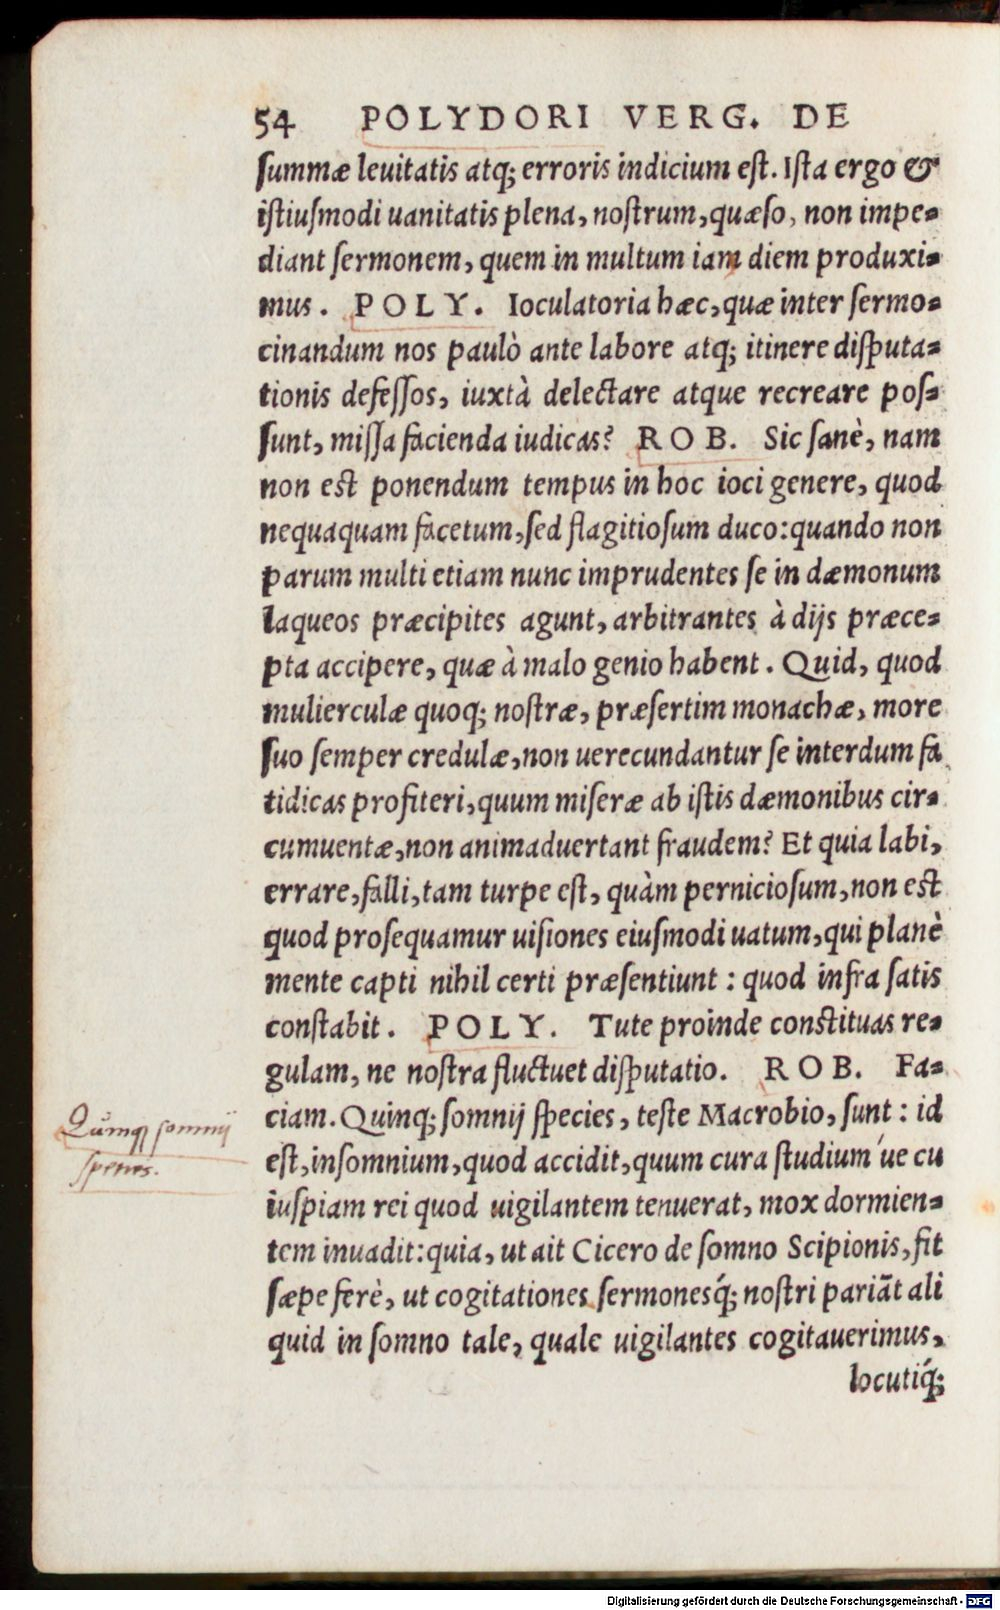 54 POLYDORI VERG. DE
summæ leuitatis atq; erroris indicium est. Ista ergo &
istiusmodi uanitatis plena, nostrum, quæso, non impe-
diant sermonem, quem in multum iam diem produxi-
mus. POLY. Ioculatoria hæc, quæ inter sermo-
cinandum nos paulò ante labore atq; itinere disputa-
tionis defessos, iuxtà delectare atque recreare pos-
sunt, missa facienda iudicas? ROB. Sic sanè, nam
non est ponendum tempus in hoc ioci genere, quod
nequaquam facetum, sed flagitiosum duco: quando non
parum multi etiam nunc imprudentes se in dæmonum
laqueos præcipites agunt, arbitrantes à dijs præce-
pta accipere, quæ à malo genio habent. Quid, quod
mulierculæ quoq; nostræ, præsertim monachæ, more
suo semper credulæ, non uerecundantur se interdum fa
tidicas profiteri, quum miseræ ab istis dæmonibus cir-
cumuentæ, non animaduertant fraudem? Et quia labi,
errare, falli, tam turpe est, quàm perniciosum, non est
quod prosequamur uisiones eiusmodi uatum, qui planè
mente capti nihil certi præsentiunt: quod infra satis
constabit. POLY. Tute proinde constituas re-
gulam, ne nostra fluctuet disputatio. ROB. Fa-
ciam. Quinq; somnij species, teste Macrobio, sunt: id
est, insomnium, quod accidit, quum cura studium´ue cu
iuspiam rei quod uigilantem tenuerat, mox dormien-
tem inuadit: quia, ut ait Cicero de somno Scipionis, fit
sæpe ferè, ut cogitationes sermonesq́; nostri pariãt ali
quid in somno tale, quale uigilantes cogitauerimus,
locutiq́;
Quinq somnij
species.
Digitalisierung gefördert durch die Deutsche Forschungsgemeinschaft - DFG